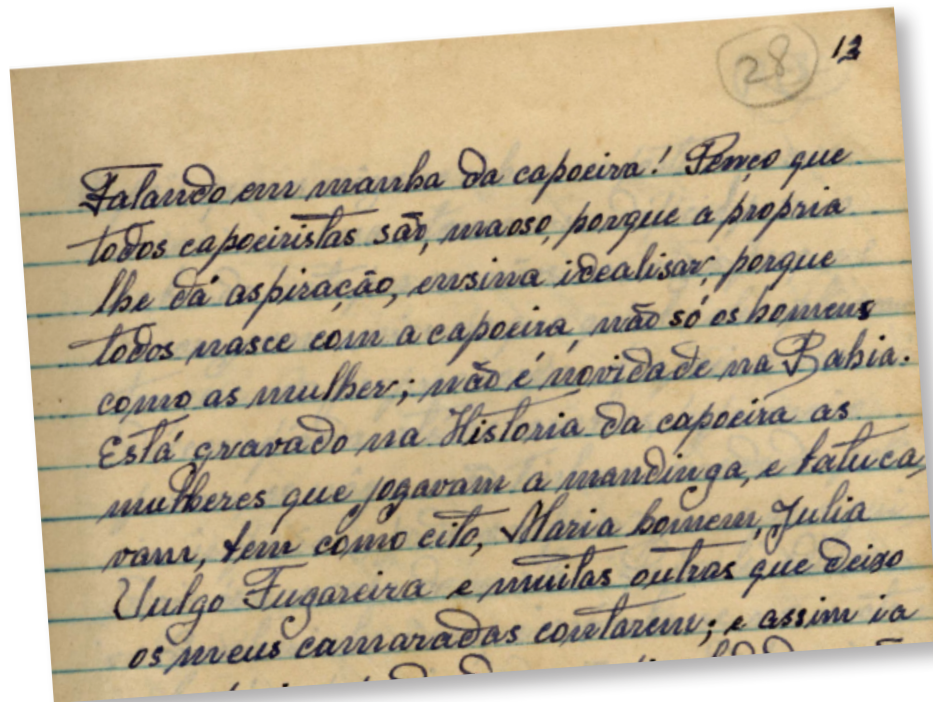 28 13
Falando em manha da capoeira! Penço que
todos capoeiristas são, maoso, porque a propria
lhe dá aspiração, ensina idealisar, porque
todos nasce com a capoeira, não só os homens
como as mulher; não é novidade na Bahia.
Está gravado na Historia da capoeira as
mulheres que jogavam a mandinga, e batuca,
vam, tem como cito, Maria homem, Julia
Vulgo Fugareira e muitas outras que deixo
os meus camaradas contarem; e assim ia